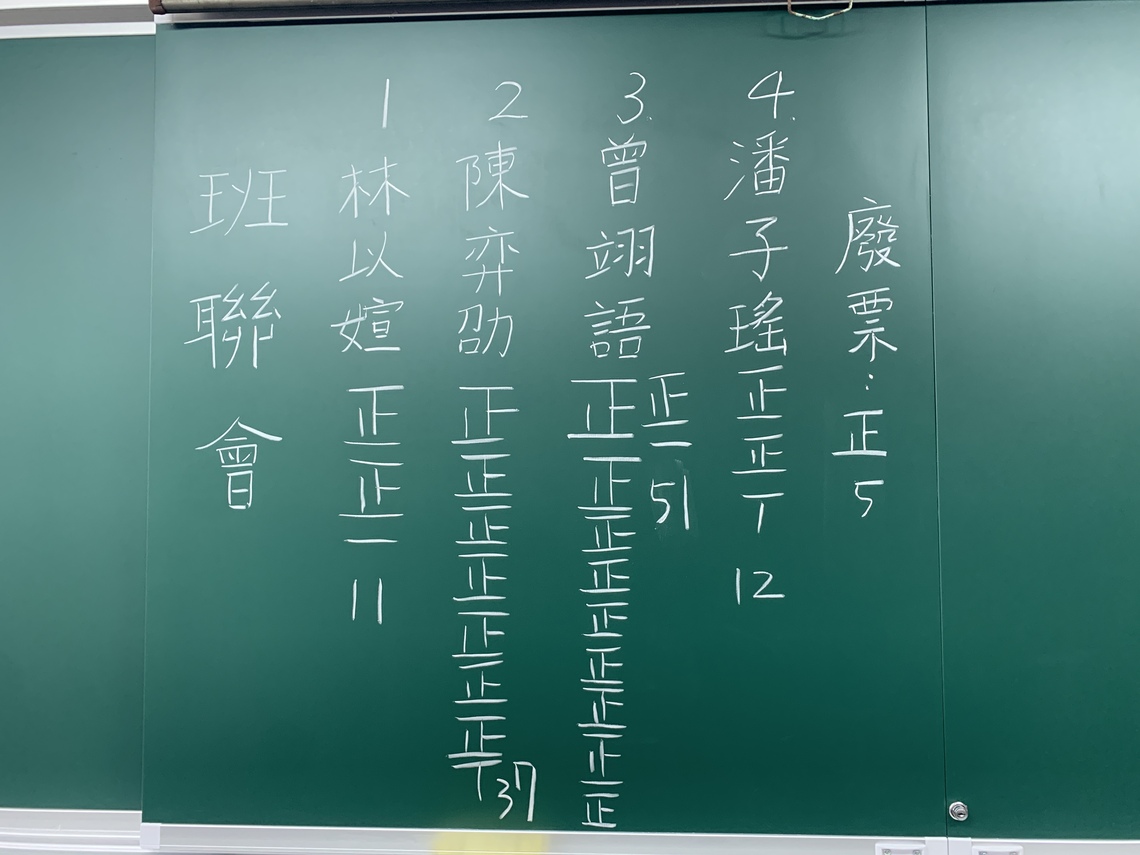 班聯會
1
林以媗
正正一
11
2
陳弈劭
正正正正正正正丅
37
3.
曾翊語
正正正正正正正正正
正一
51
4.
潘子瑤
正正丅
12
廢票:正
5